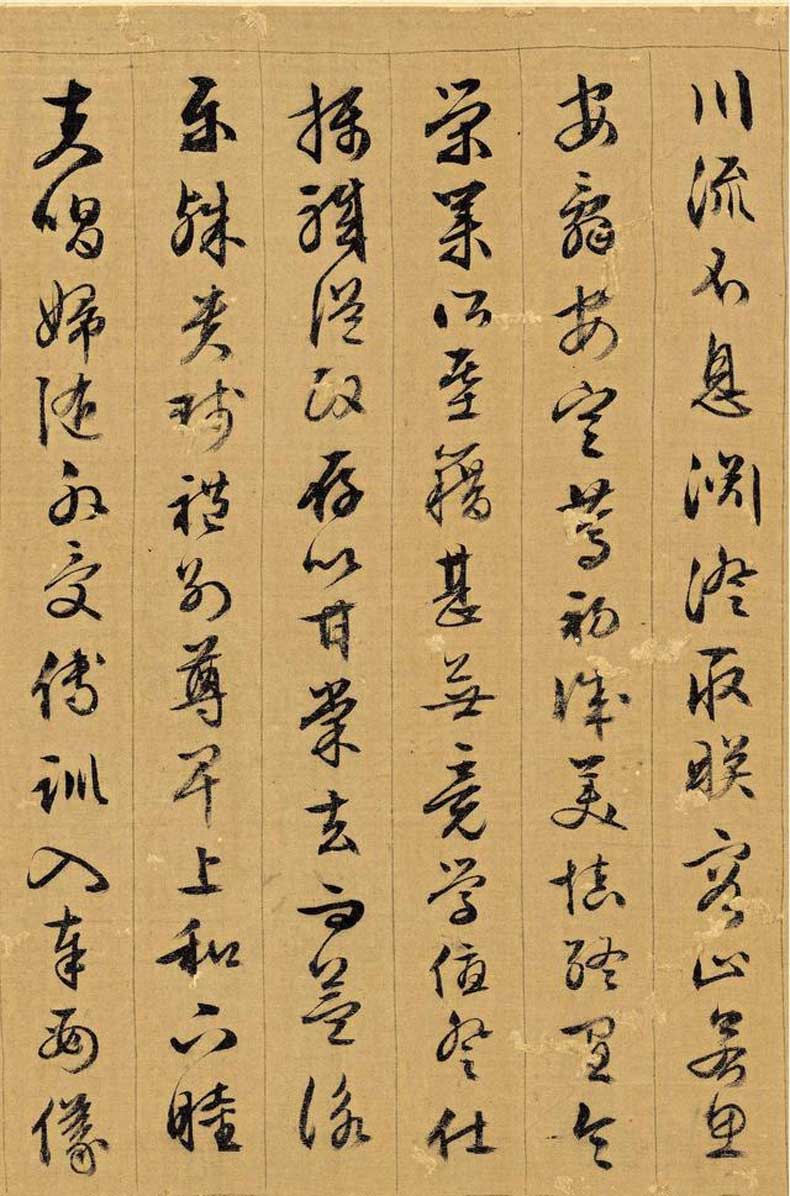 川流不息淵澄取映容止若思
安辭安定篤初誠美慎終宜令
榮業所基籍甚無竟學優登仕
攝職從政存以甘棠去而益詠
樂殊貴賤禮別尊卑上和下睦
夫唱婦隨外受傅訓入奉母儀